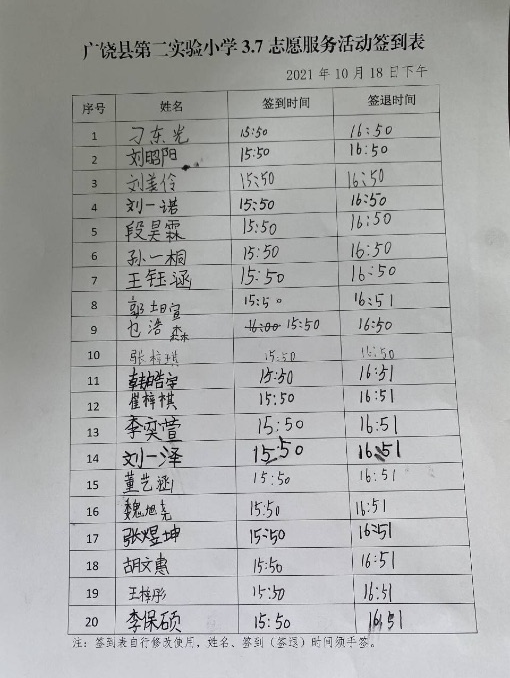 广饶县第二实验小学 3.7 志愿服务活动签到表
2021 年 10 月 18 日下午
序号 姓名 签到时间 签退时间
1 刁东光 15:50 16:50
2 刘昭阳 15:50 16:50
3 刘姜伶 15:50 16:50
4 刘一诺 15:50 16:50
5 段昊霖 15:50 16:50
6 孙一桐 15:50 16:50
7 王钰涵 15:50 16:50
8 郭 15:50 16:51
9 浩 16:00 15:50 16:50
10 张梓琪 15:50 16:50
11 韩皓宇 15:50 16:51
12 崔梓棋 15:50 16:51
13 李奕萱 15:50 16:51
14 刘一泽 15:50 16:51
15 董艺涵 15:50 16:51
16 魏旭尧 15:50 16:51
17 张煜坤 15:50 16:51
18 胡文惠 15:50 16:51
19 王梓彤 15:50 16:51
20 李保硕 15:50 16:51
注：签到表自行修改使用，姓名、签到（签退）时间须手签。